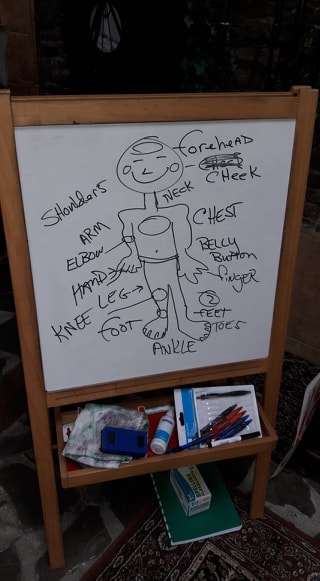 forehead
CHEEK
NECK
SHOULDERS
CHEST
ARM
ELBOW
BELLY
BUTTON
HAND
finger
LEG
2
FEET
TOES
KNEE
FOOT
ANKLE